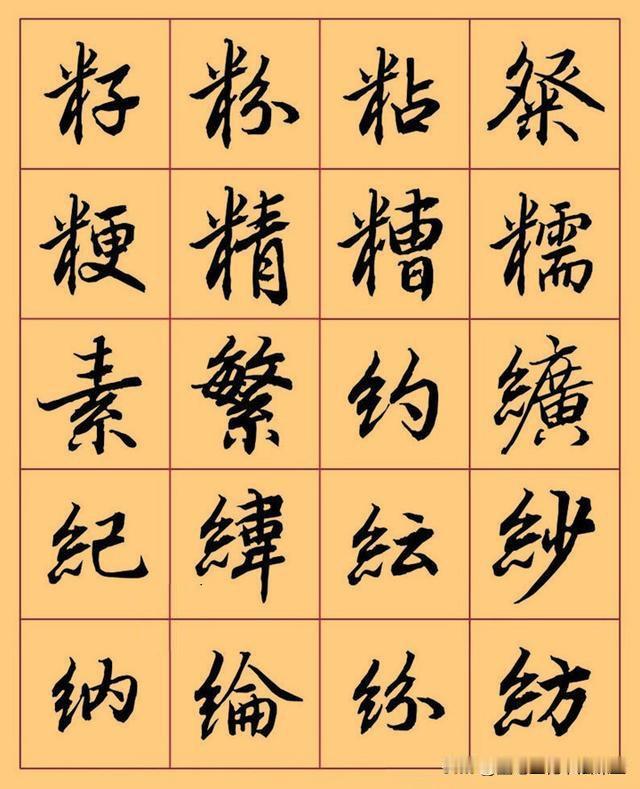 籽粉粘粲
粳精糟糯
素繁約纊
紀緯紜紗
納綸紛紡